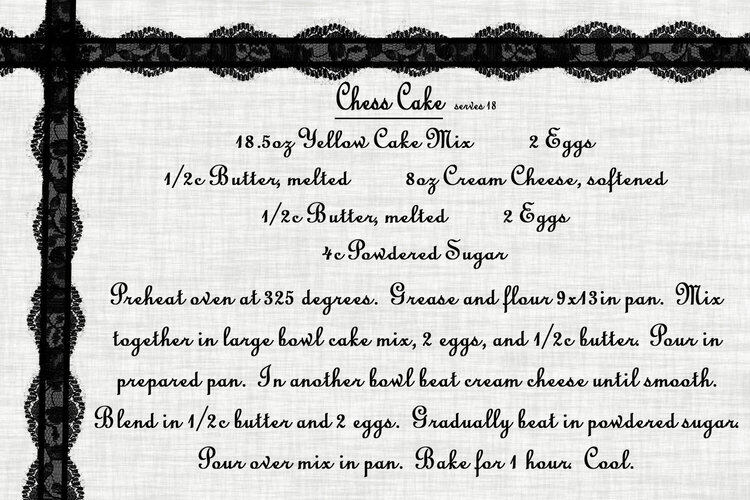 Chess Cake serves 18
18.5oz Yellow Cake Mix 2 Eggs
1/2c Butter, melted 8oz Cream Cheese, softened
1/2c Butter, melted 2 Eggs
4c Powdered Sugar
Preheat oven at 325 degrees. Grease and flour 9x13in pan. Mix
together in large bowl cake mix, 2 eggs, and 1/2c butter. Pour in
prepared pan. In another bowl beat cream cheese until smooth.
Blend in 1/2c butter and 2 eggs. Gradually beat in powdered sugar.
Pour over mix in pan. Bake for 1 hour. Cool.